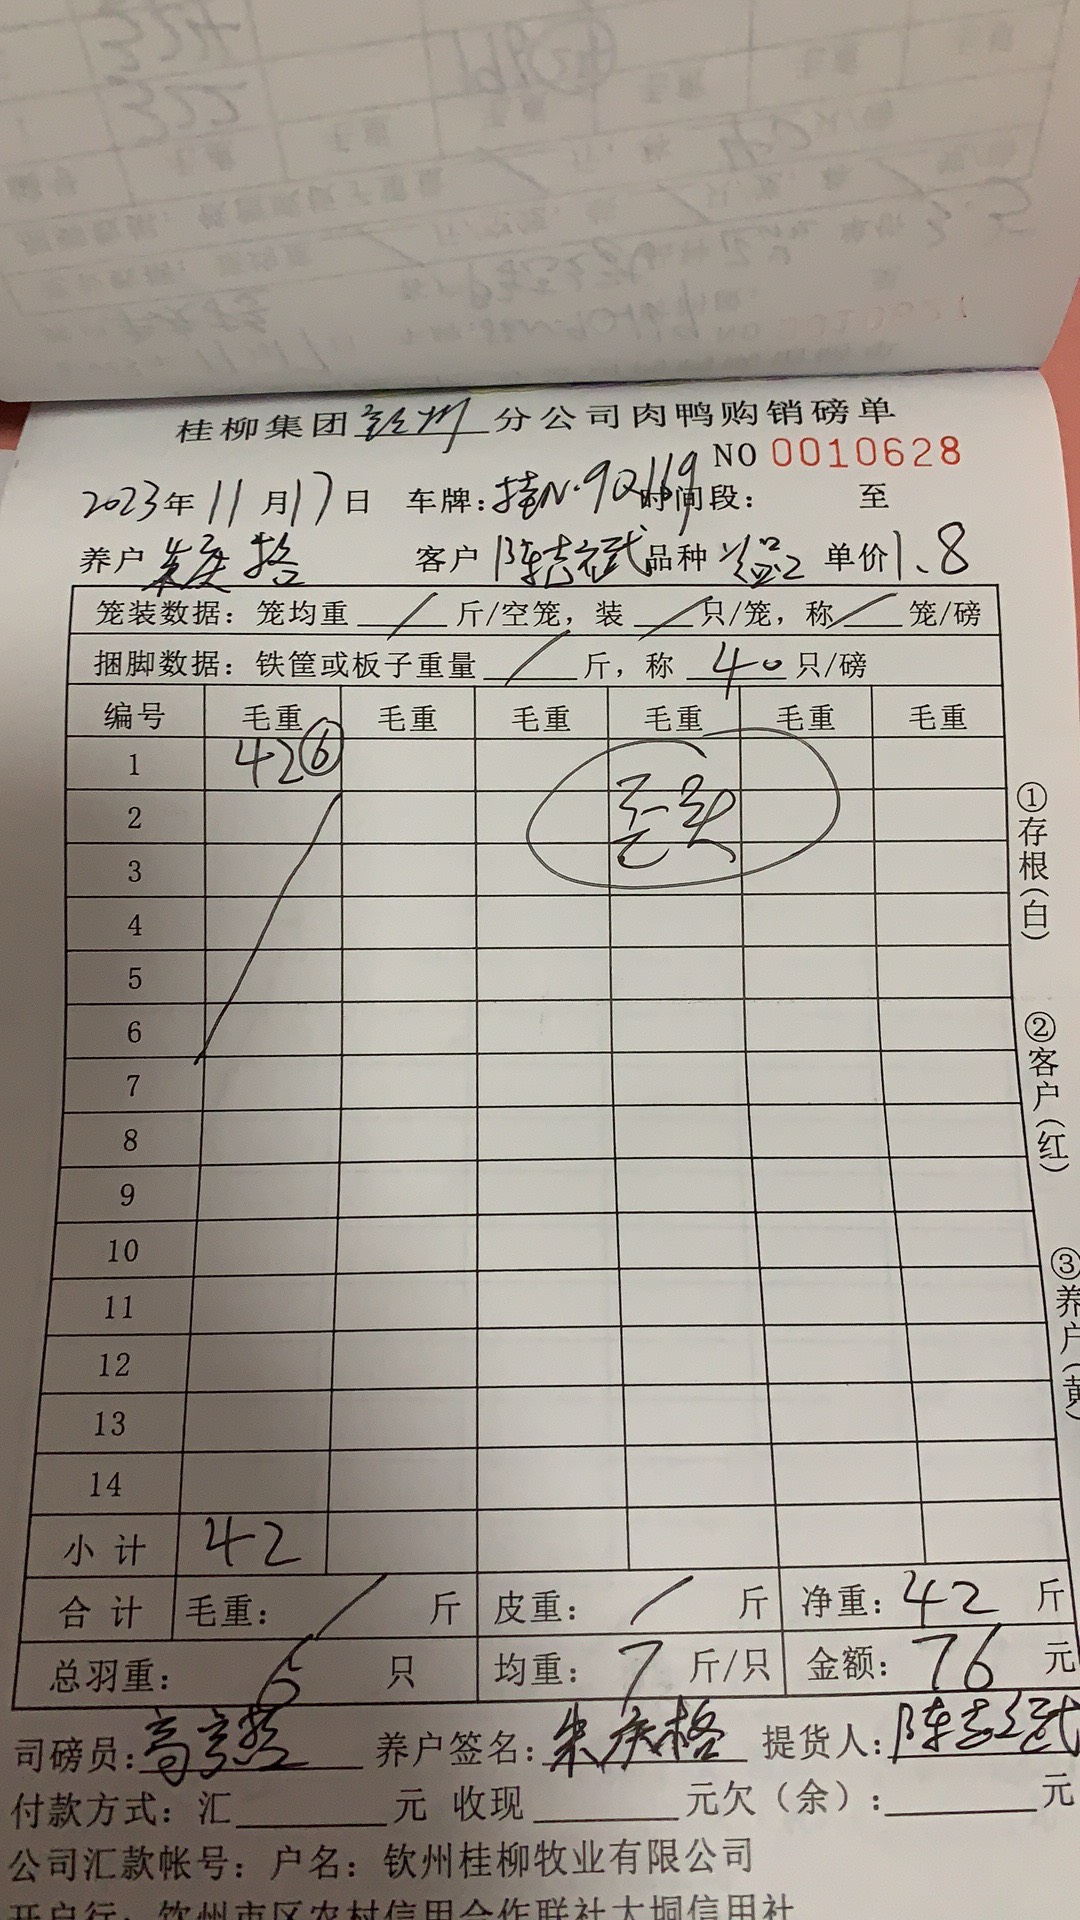 桂柳集团钦州分公司肉鸭购销磅单
NO 0010628
2023年11月17日 车牌:桂N·9Q169 时间段: 至
养户 朱庆格 客户 陈志武 品种 单价1.8
笼装数据:笼均重 / 斤/空笼,装 / 只/笼,称 / 笼/磅
捆脚数据:铁筐或板子重量 / 斤,称 40 只/磅
编号 毛重 毛重 毛重 毛重 毛重 毛重
1 42 ⑥
2
3
4
5
6
7
8
9
10
11
12
13
14
小计 42
合计 毛重: / 斤 皮重: / 斤 净重:42 斤
总羽重: 6 只 均重:7 斤/只 金额:76 元
司磅员: 养户签名:朱庆格 提货人:陈志武
付款方式:汇 元 收现 元欠(余): 元
公司汇款帐号:户名:钦州桂柳牧业有限公司
开户行:钦州市区农村信用合作联社大垌信用社
①存根(白)
②客户(红)
③养户(黄)